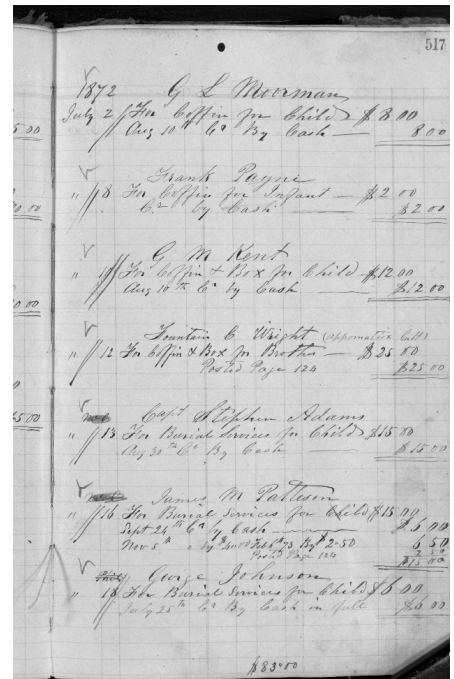 517
1872 G L Moorman
July 2 For Coffin for Child $8 00
Aug 10th Cr By Cash — 8 00
Frank Payne
" 8 For Coffin for Infant — $2 00
Cr by Cash — $2 00
G M Kent
" 10 For Coffin & Box for Child $12 00
Aug 10th Cr by Cash — $12 00
Fountain C Wright (Appomattox CH)
" 12 For Coffin & Box for Brother — $25 00
Posted Page 124 $25 00
Capt Stephen Adams
" 13 For Burial Services for Child $15 00
Aug 30th Cr By Cash — $15 00
James M Patteson
" 16 For Burial Services for Child $15 00
Sept 24th Cr by Cash — $6 00
Nov 5th " by $ Feb 6th 73 By $2-50 6 50
Postd Page 124 2 50
$15 00
George Johnson
" 18 For Burial Services for Child $6 00
July 25th Cr By Cash in full $6 00
$83.00
5 00
0 00
0 00
5 00